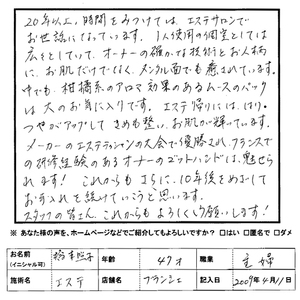 20年以上、時間をみつけては、エステサロンで
お世話になっています。1人使用の個室としては
広々としていて、オーナーの確かな技術とお人柄
に、お肌だけでなく、メンタル面でも癒されています。
中でも、柑橘系のアロマ効果のあるムースのパック
は大のお気に入りです。エステ帰りには、はり、
つやがアップして きめも整い、お肌が輝いています。
メーカーのエステティシャンの大会で優勝され、フランスで
の研修経験のあるオーナーのゴットハンドは、魅せら
れます! これからも さらに、10年後をめざして
お手入れを続けていこうと思います。
スタッフの皆さん、これからもよろしくお願いします!
※ あなた様の声を、ホームページなどでご紹介してもよろしいですか? □はい □匿名で □ダメ
お名前 (イニシャル可) 年齢 47才 職業 主婦
施術名 エステ 店舗名 フランシェ 記入日 2009年4月11日